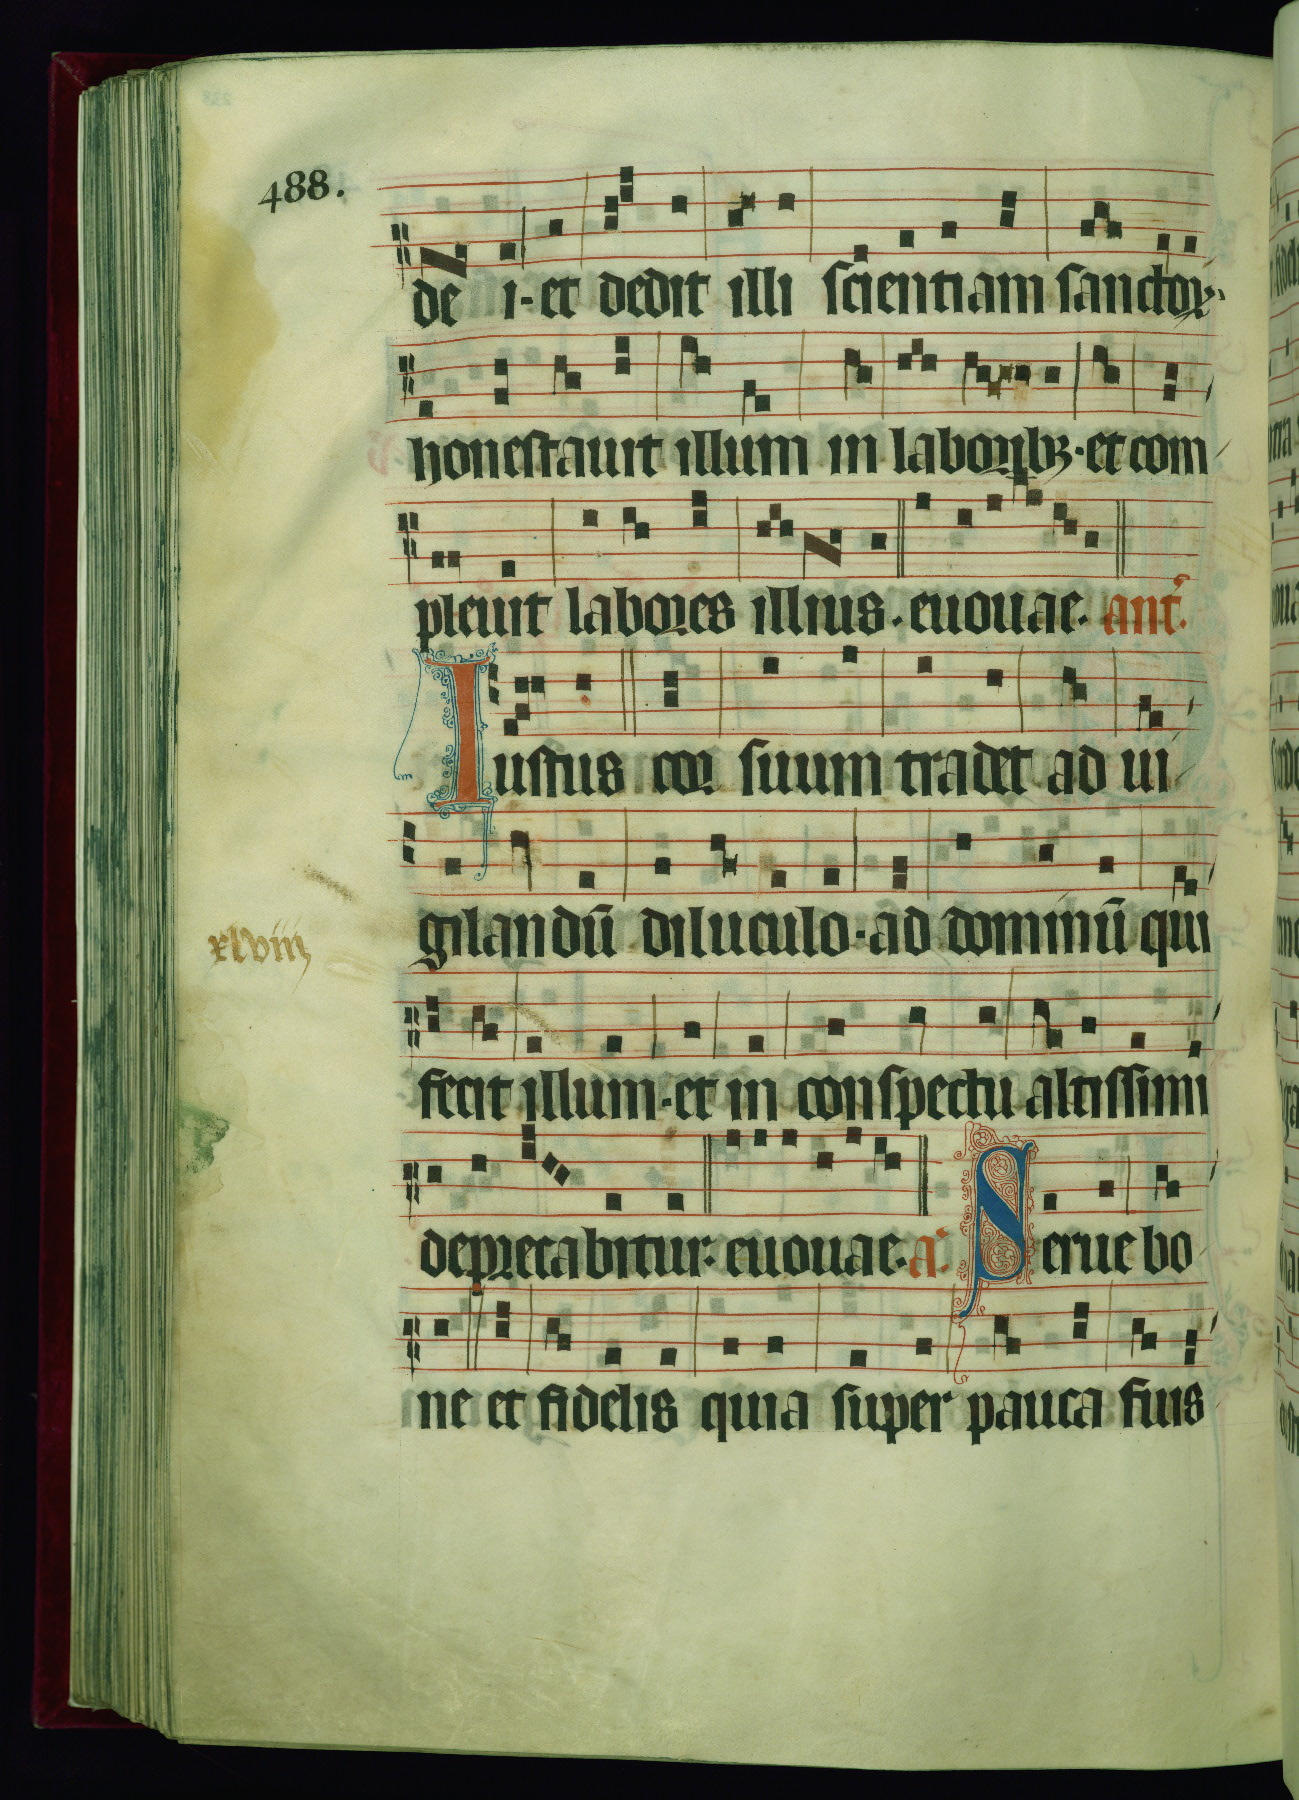 488.
de i · et dedit illi scientiam sanctoꝝ ·
honestauit illum in laboribꝫ · et com
pleuit labores illius · euouae · anť.
Iustus cor suum tradet ad ui
gilandū diluculo · ad dominū qui
xlviij
fecit illum · et in conspectu altissimi
deprecabitur : euouae · a. Serue bo
ne et fidelis quia super pauca fuis